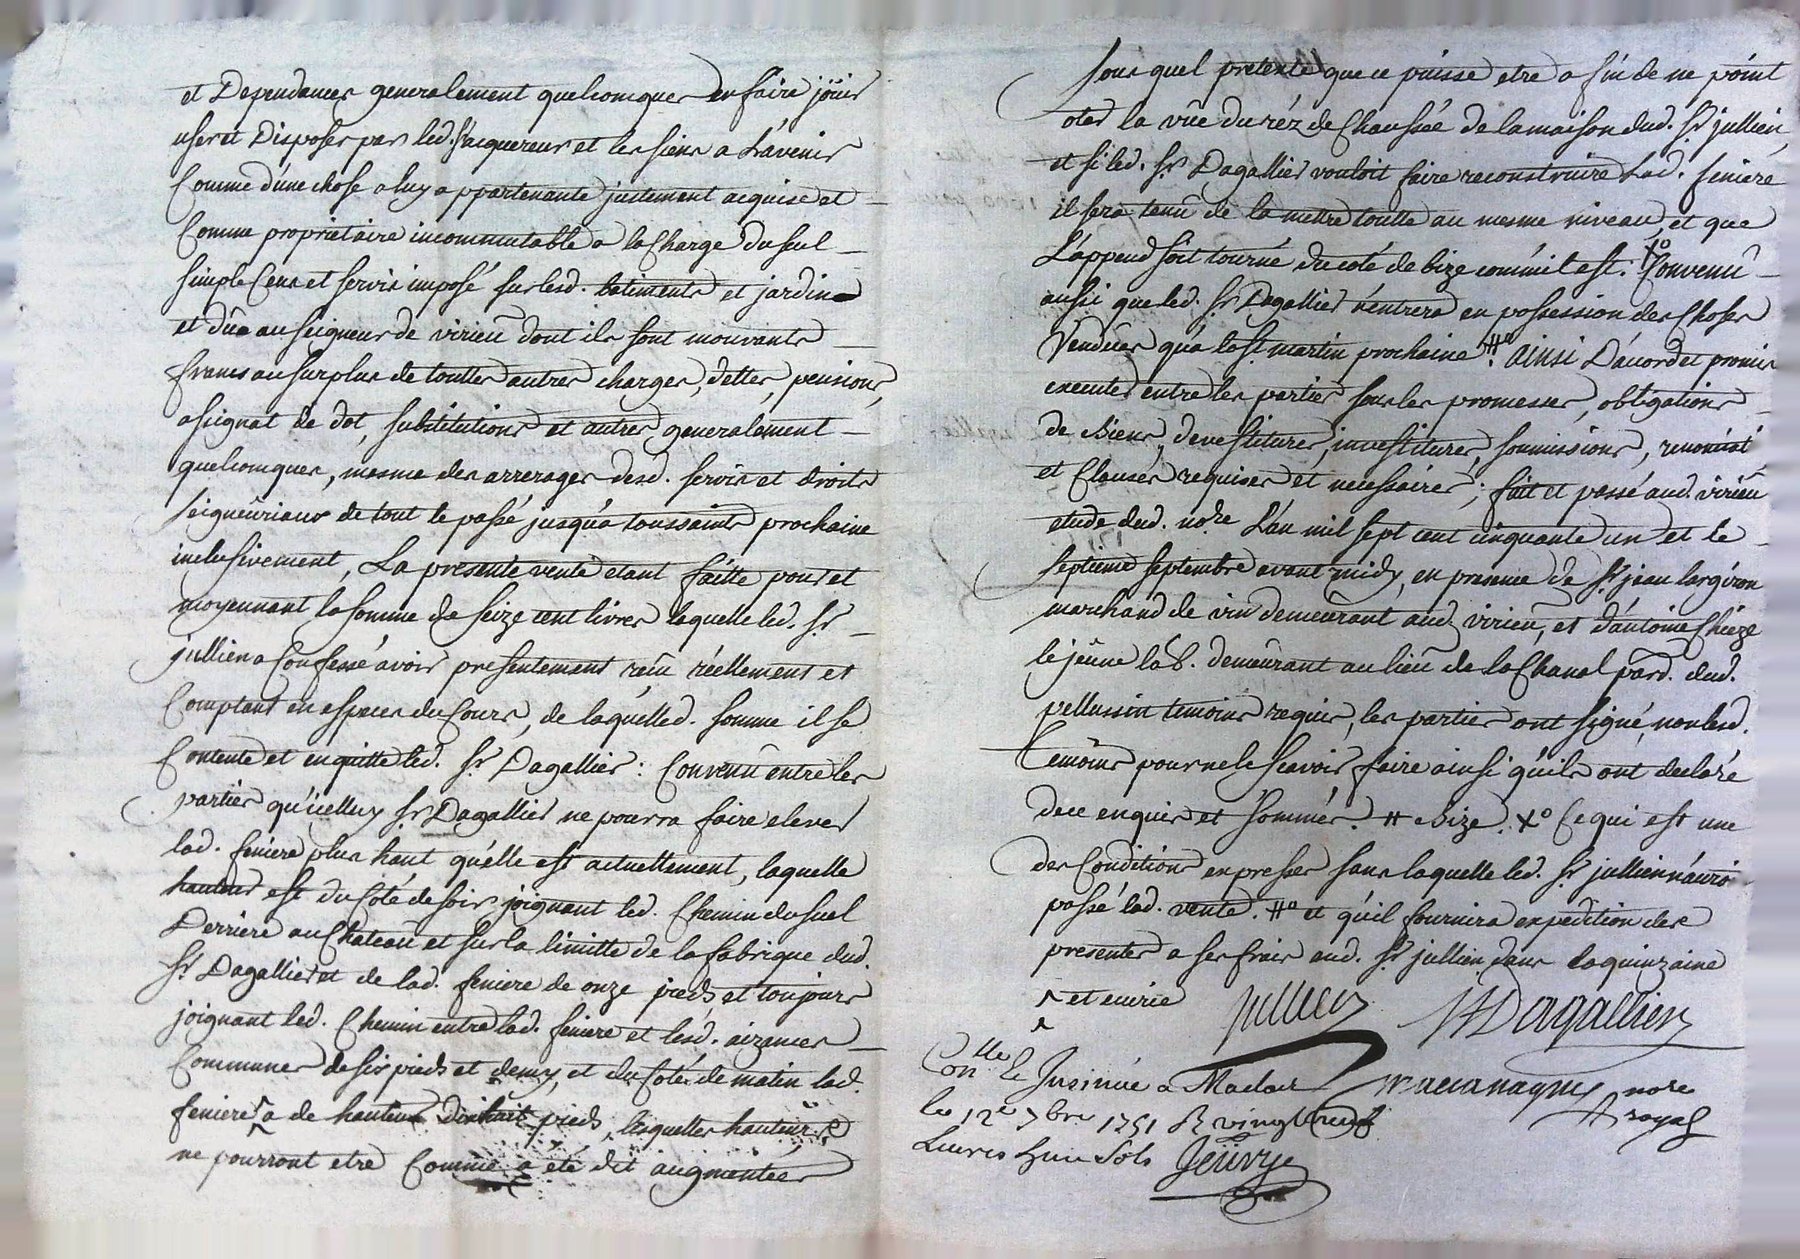 et Dependances generalement quelconques en faire jöuir
user et Disposer par led. Sr acquereur et les siens a L'avenir
Comme d'une chose a luy appartenante justement acquise et
Comme proprietaire incommutable a la Charge du seul
simple Cens et servis imposé sur lesd. batiments et jardin
et dûs au seigneur de virieû dont ils sont mouvants
francs au surplus de touttes autres charges, dettes, pensions,
assignat de dot, substitutions et autres generalement
quelconques, mesme des arrerages desd. servis et droits
seigneuriaux de tout le passé jusqu'a toussaints prochaine
inclusivement, La presente vente etant faitte pour et
moyennant la somme de seize cent livres laquelle led. Sr
jullien a Confessé avoir presentement reçu réellement et
Comptant en especes du Cours, de laquelle d. somme il se
Contente et en quitte led. Sr Dagallier : Convenu entre les
parties qu'icelluy Sr Dagallier ne pourra faire elever
lad. feniere plus haut qu'elle est actuellement, laquelle
hauteur est du Coté de soir joignant led. Chemin du suel
Derriere au Chateau et sur la limitte de la fabrique dud.
Sr Dagallier et de lad. feniere de onze pieds et toujours
joignant led. Chemin entre lad. feniere et lesd. aizances
Communes de six pieds et demy, et du Coté de matin lad.
feniere ^ a de hauteur Dix huit pieds, lesquelles hauteurs
ne pourront etre Comme a eté dit augmentées
sous quel pretexte que ce puisse etre a fin de ne point
oter la vûe du réz de Chaussée de la maison dud. Sr jullien,
et si led. Sr Dagallier vouloit faire reconstruire Lad. feniere
il sera tenû de la mettre toutte au mesme niveau, et que
L'append soit tourné du coté de bize comm'il est. Xo Convenû
aussi que led. Sr Dagallier n'entrera en possession des Choses
Vendûes qu'a la St martin prochaine #o. ainsi D'acord et promis
executer entre les parties sous les promesses, obligations
de Biens, devestitures, investitures, soumissions, renonciat
et Clauses requises et necessaires ; fait et passé aud. virieû
etude dud. nore L'an mil sept cent cinquante un et le
septieme septembre avant midy, en presence de Sr jean largiron
marchand de vin demeurant aud. virieû, et d'antoine Chieze
le jeûne lab. demeûrant au lieû de la Chanal parr. dud.
pellussin temoins requis, les parties ont signé, non lesd.
temoins pour ne le scavoir faire ainsi qu'ils ont declaré
de ce enquis et sommés. # Bize. Xo Ce qui est une
des Conditions expresses sans laquelle led. Sr jullien n'auroit
passé lad. vente. #o et qu'il fournira expedition des
presentes a ses frais aud. Sr jullien dans la quinzaine
^ et curie
jullien Dagallier
Conlle & Insinué a Maclas
nore
le 12e 7bre 1751 R vingt neuf
royal
Livres huit Sols